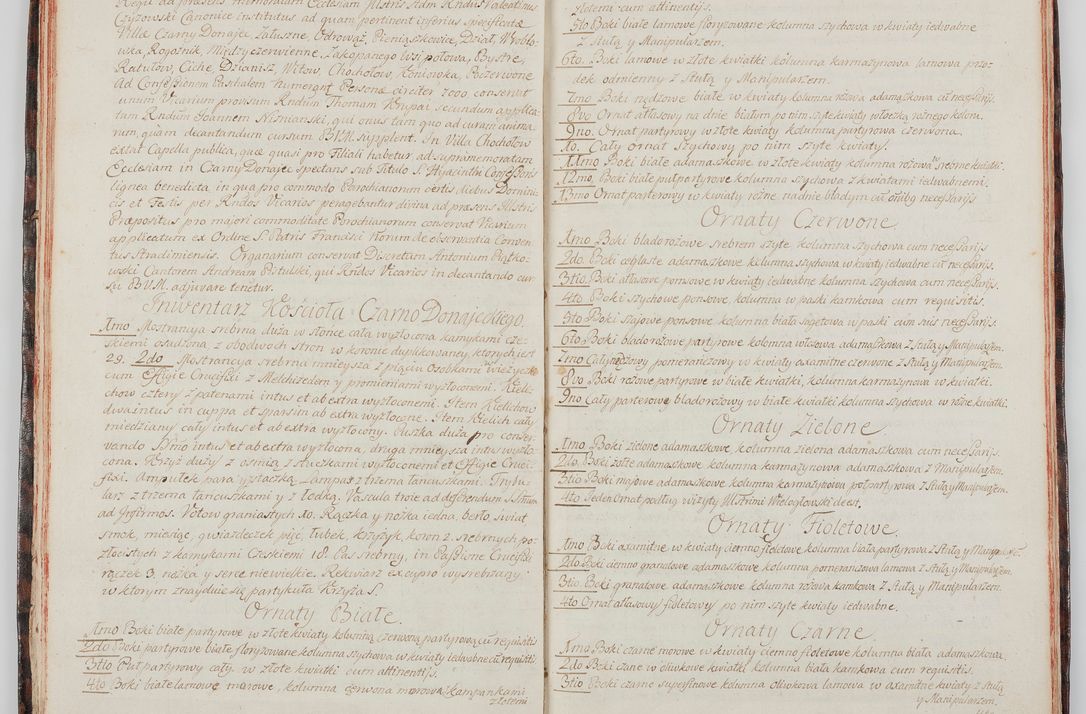 Regij ad præsens Administratorem Ecclesiam Illstris Adm Rndus Valentinus
Czyżowski Canonice institutus ad quam pertinent inferius specificatæ
Villæ Czarny Donajec, Załuszne, Odrowąż, Pieniąszkowice, Dział, Wróblo-
wka, Rogoźnik, Międzyczerwienne, Zakopanego Wsi połowa, Bystre,
Ratułow, Ciche, Dzianisz, Witow, Chochołow, Koniowka, Podczerwone
Ad Confessionem Paschalem numerant Personæ circiter 7000 conservat
unum Vicarium provisum Rndum Thomam Krupai secundum applica-
tum Rndum Joannem Niźnianski, qui onus tam quo ad curam anima
rum, quam decantandum cursum BVM. supplent. In Villa Chochołow
extat Capella publica, quæ quasi pro Filiali habetur ad supramemoratam
Ecclesiam in Czarny Donajec spectans sub Titulo S. Hyacinthi Confessoris
lignea benedicta in qua pro commodo Parochianorum certis diebus Domini-
cis et Festis per Rndos Vicarios peragebantur divina ad præsens Illstris
Præpositus pro majori commoditate Parochianorum conservat Vicarium
applicatum ex Ordine S. Patris Francisci Florum de observantia Conven-
tus Stradimiensis. Organarium conservat Discretum Antonium Piątko-
wski Cantorem Andream Pitulski, qui Rndos Vicarios in decantando cur-
su BVM. adjuvare tenetur.
Inwentarz Kościoła Czarno Donajeckiego.
1mo Monstrancya srebrna duża w słońce cała wyzłocona kamykami cze-
skiemi osadzona z obodwoch Stron w koronie duplikowaney, ktorych jest
29. 2do Monstrancya srebrna mnieysza z pięciu osobkami wieżyczka
cum Effigie Crucifixi z Melchizedem y promieniami wyzłoconemi. Kieli-
chow cztery z patenami intus et ab extra wyzłoconemi. Item Kielichow
dwa intus in cuppa et sparsim ab extra wyzłocone. Item Kielich cały
miedziany cały intus et ab extra wyzłocony. Puszka duża pro conser-
vando Ssmo intus et ab extra wyzłocona, druga mnieysza intus wyzło-
cona. Krzyż duży z osmią sztuczkami wyzłoconemi et Effigie Cruci-
fixi. Ampułek para y tacką. Lampas z trzema łancuszkami. Trybu-
larz z trzema łancuszkami y z łodką. Vascula troie ad defferendum S. Oleum
ad Infirmos. Votow graniastych 10. Rączka y nożka iedna, berło, świat
smok, miesiąc, gwiazdeczek pięć, Tubek, krzyżyk, koron 2. srebrnych po-
złocistych z kamykami Czeskiemi 18. Pas srebrny, in Passione Crucifixi
rączek 3. nóżka y serce niewielkie. Rekwiarz ex cupro wysrebrzany
w ktorym znayduie się partykuła Krzyża S.
Ornaty Białe.
1mo Boki białe partyrowe w złote kwiaty kolumną czerwoną partyrową cū requisitis
2do Boki partyrowe białe floryzowane kolumna szychowa w kwiaty iedwabne cū requisitis
3tio Ornat partyrowy cały w złote kwiatki cum attinentijs.
4to Boki białe lamowe morowe, kolumna czerwona morowa kampankami
złotemi
złotemi cum attinentijs.
5to Boki białe lamowe floryzowane kolumna szychowa w kwiaty iedwabne
z Stułą y Manipularzem.
6to. Boki lamowe w złote kwiatki kolumna karmazynowa lamowa przo-
dek odmienny z Stułą y Manipularzem.
7mo Boki nędzowe białe w kwiaty kolumna różowa adamaszkowa cū necessarijs.
8vo Ornat atłasowy na dnie białym po nim szyte kwiaty włoczką rożnego koloru.
9no. Ornat partyrowy w złote kwiaty kolumna partyrowa czerwona.
10. Cały Ornat Szychowy po nim szyte kwiaty.
11mo Boki białe adamaszkowe w złote kwiaty kolumna rożowa w srebrne kwiatki.
12mo. Boki białe pułpartyrowe kolumna szychowa z kwiatami iedwabnemi.
13mo Ornat parterowy w kwiaty rożne na dnie bladym cū oībq necessarijs
Ornaty Czerwone.
1mo Boki bladorożowe srebrem szyte kolumna szychowa cum necessarijs.
2do. Boki ceglaste adamaszkowe kolumna szychowa w kwiaty iedwabne cū necessarijs.
3tio. Boki atłasowe ponsowe w kwiaty iedwabne kolumna szychowa cum necessarijs.
4to Boki Szychowe ponsowe kolumna w paski kamkowa cum requisitis.
5to Boki stajowe ponsowe kolumna biała sagetowa w paski cum suis necessarijs.
6to Boki bladorożowe partyrowe kolomna włosowa adamaszkowa z Stułą y Manipularzem.
7mo Cały nędzowy pomerańczowy w kwiaty axamitne czerwone z Stułą y Manipularzem
8vo Boki rożowe partyrowe w białe kwiatki, kolumna karmazynowa w kwiatki.
9no Cały parterowy bladorożowy w białe kwiatki kolumna szychowa w rożne kwiatki.
Ornaty Zielone.
1mo Boki zielone adamaszkowe kolumna zielona adamaszkowa cum necessarijs.
2do. Boki żołte adamaszkowe kolumna karmazynowa adamaszkowa z Manipularzem.
3tio Boki majowe adamaszkowe kolumna karmazynowa pułpartyrowa z Stułą y Manipularzem.
4to Jeden Ornat podług wizyty Illstrismi Wielogłowski deest.
Ornaty Fioletowe.
1mo Boki axamitne w kwiaty ciemno fioletowe kolumna biała partyrowa z Stułą y Manipularzē.
2do Boki ciemno granatowe adamaszkowe kolumna pomerańczowa lamowa z Stułą y Manipularzem.
3tio. Boki granatowe adamaszkowe kolumna rożowa kamkowa z Stułą y Manipularzem.
4to Ornat atłasowy fioletowy po nim szyte kwiaty iedwabne.
Ornaty Czarne.
1mo Boki czarne morowe w kwiaty ciemno fioletowe kolumna biała adamaszkowa.
2do Boki czarne w oliwkowe kwiatki kolumna biała kamkowa cum requisitis.
3tio Boki czarne superfinowe kolumna oliwkowa lamowa w axamitne kwiaty z Stułą
y Manipularzem.